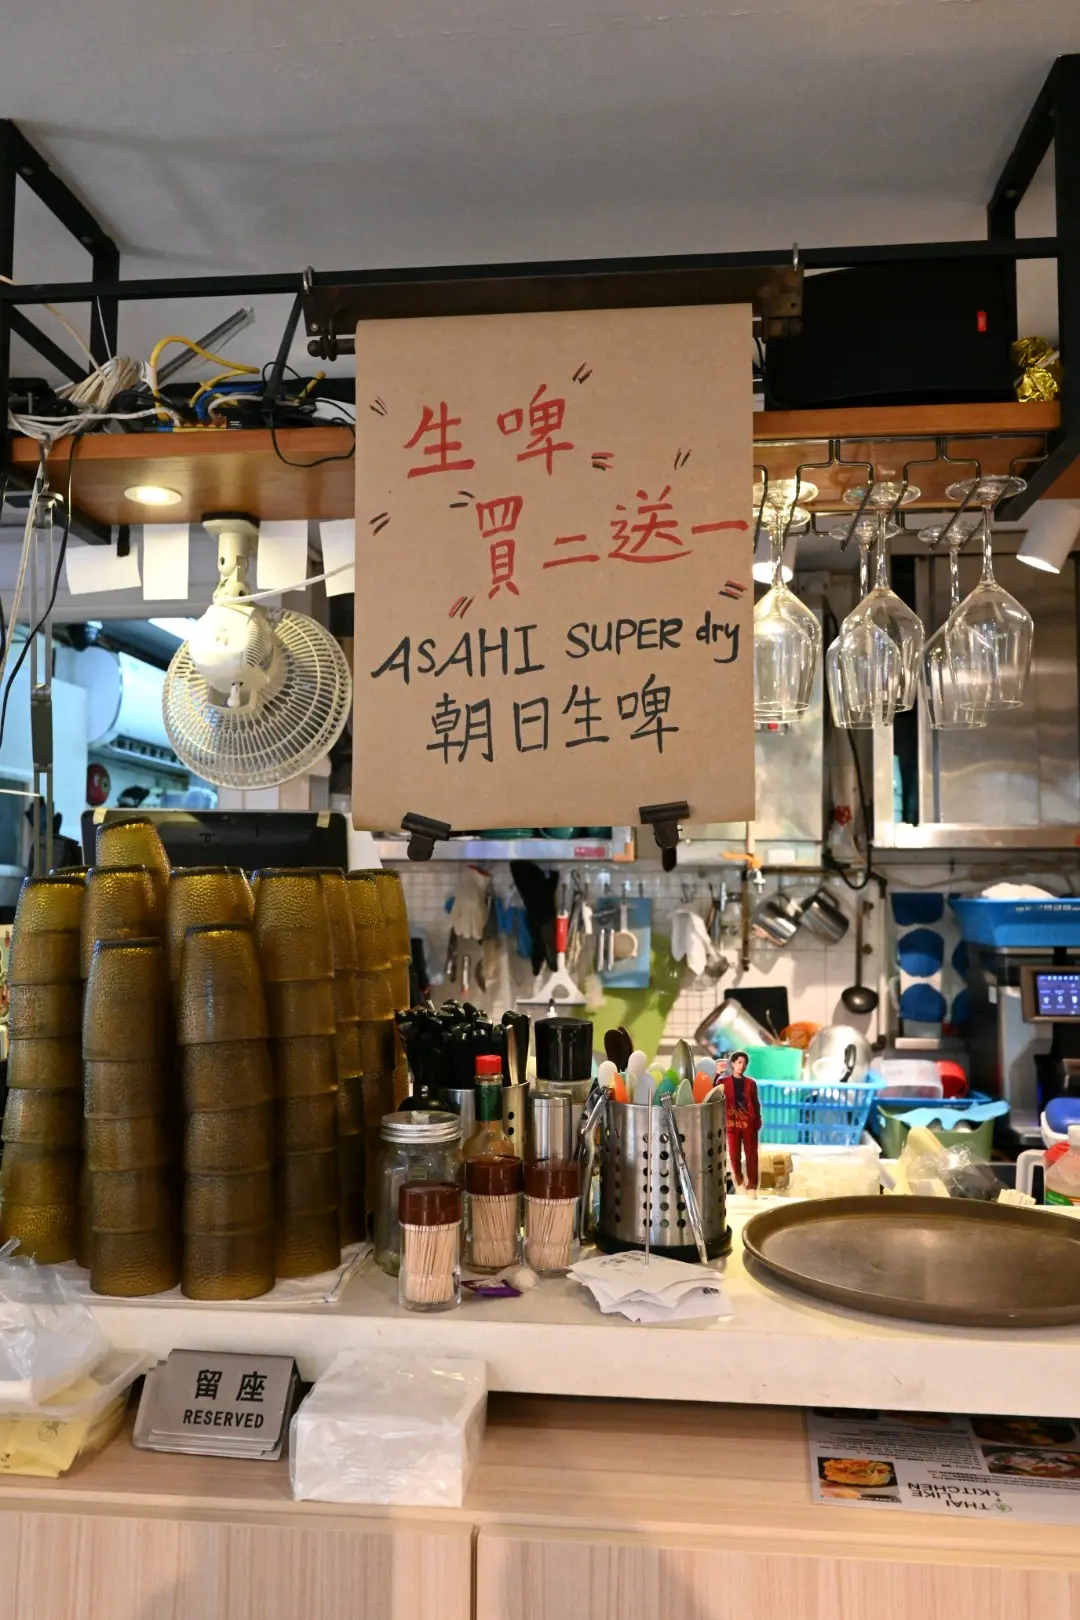 生啤
買二送一
ASAHI SUPER dry
朝日生啤
留座
RESERVED
THAI
LIKE
KITCHEN